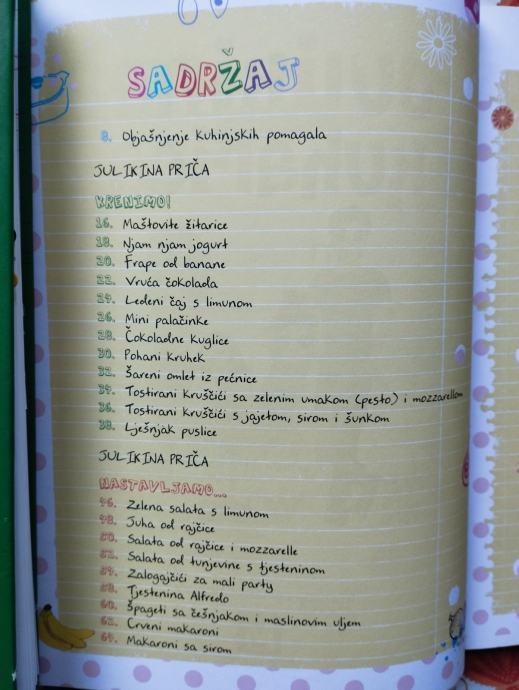 SADRŽAJ
8. Objašnjenje kuhinjskih pomagala
JULIKINA PRIČA
KRENIMO!
16. Maštovite žitarice
18. Njam njam jogurt
20. Frape od banane
22. Vruća čokolada
24. Ledeni čaj s limunom
26. Mini palačinke
28. Čokoladne kuglice
30. Pohani kruhek
32. Šareni omlet iz pećnice
34. Tostirani kruščići sa zelenim umakom (pesto) i mozzarellom
36. Tostirani kruščići s jajetom, sirom i šunkom
38. Lješnjak puslice
JULIKINA PRIČA
NASTAVLJAMO...
46. Zelena salata s limunom
48. Juha od rajčice
50. Salata od rajčice i mozzarelle
52. Salata od tunjevine s tjesteninom
54. Zalogajčići za mali party
58. Tjestenina Alfredo
60. Špageti sa češnjakom i maslinovim uljem
62. Crveni makaroni
64. Makaroni sa sirom